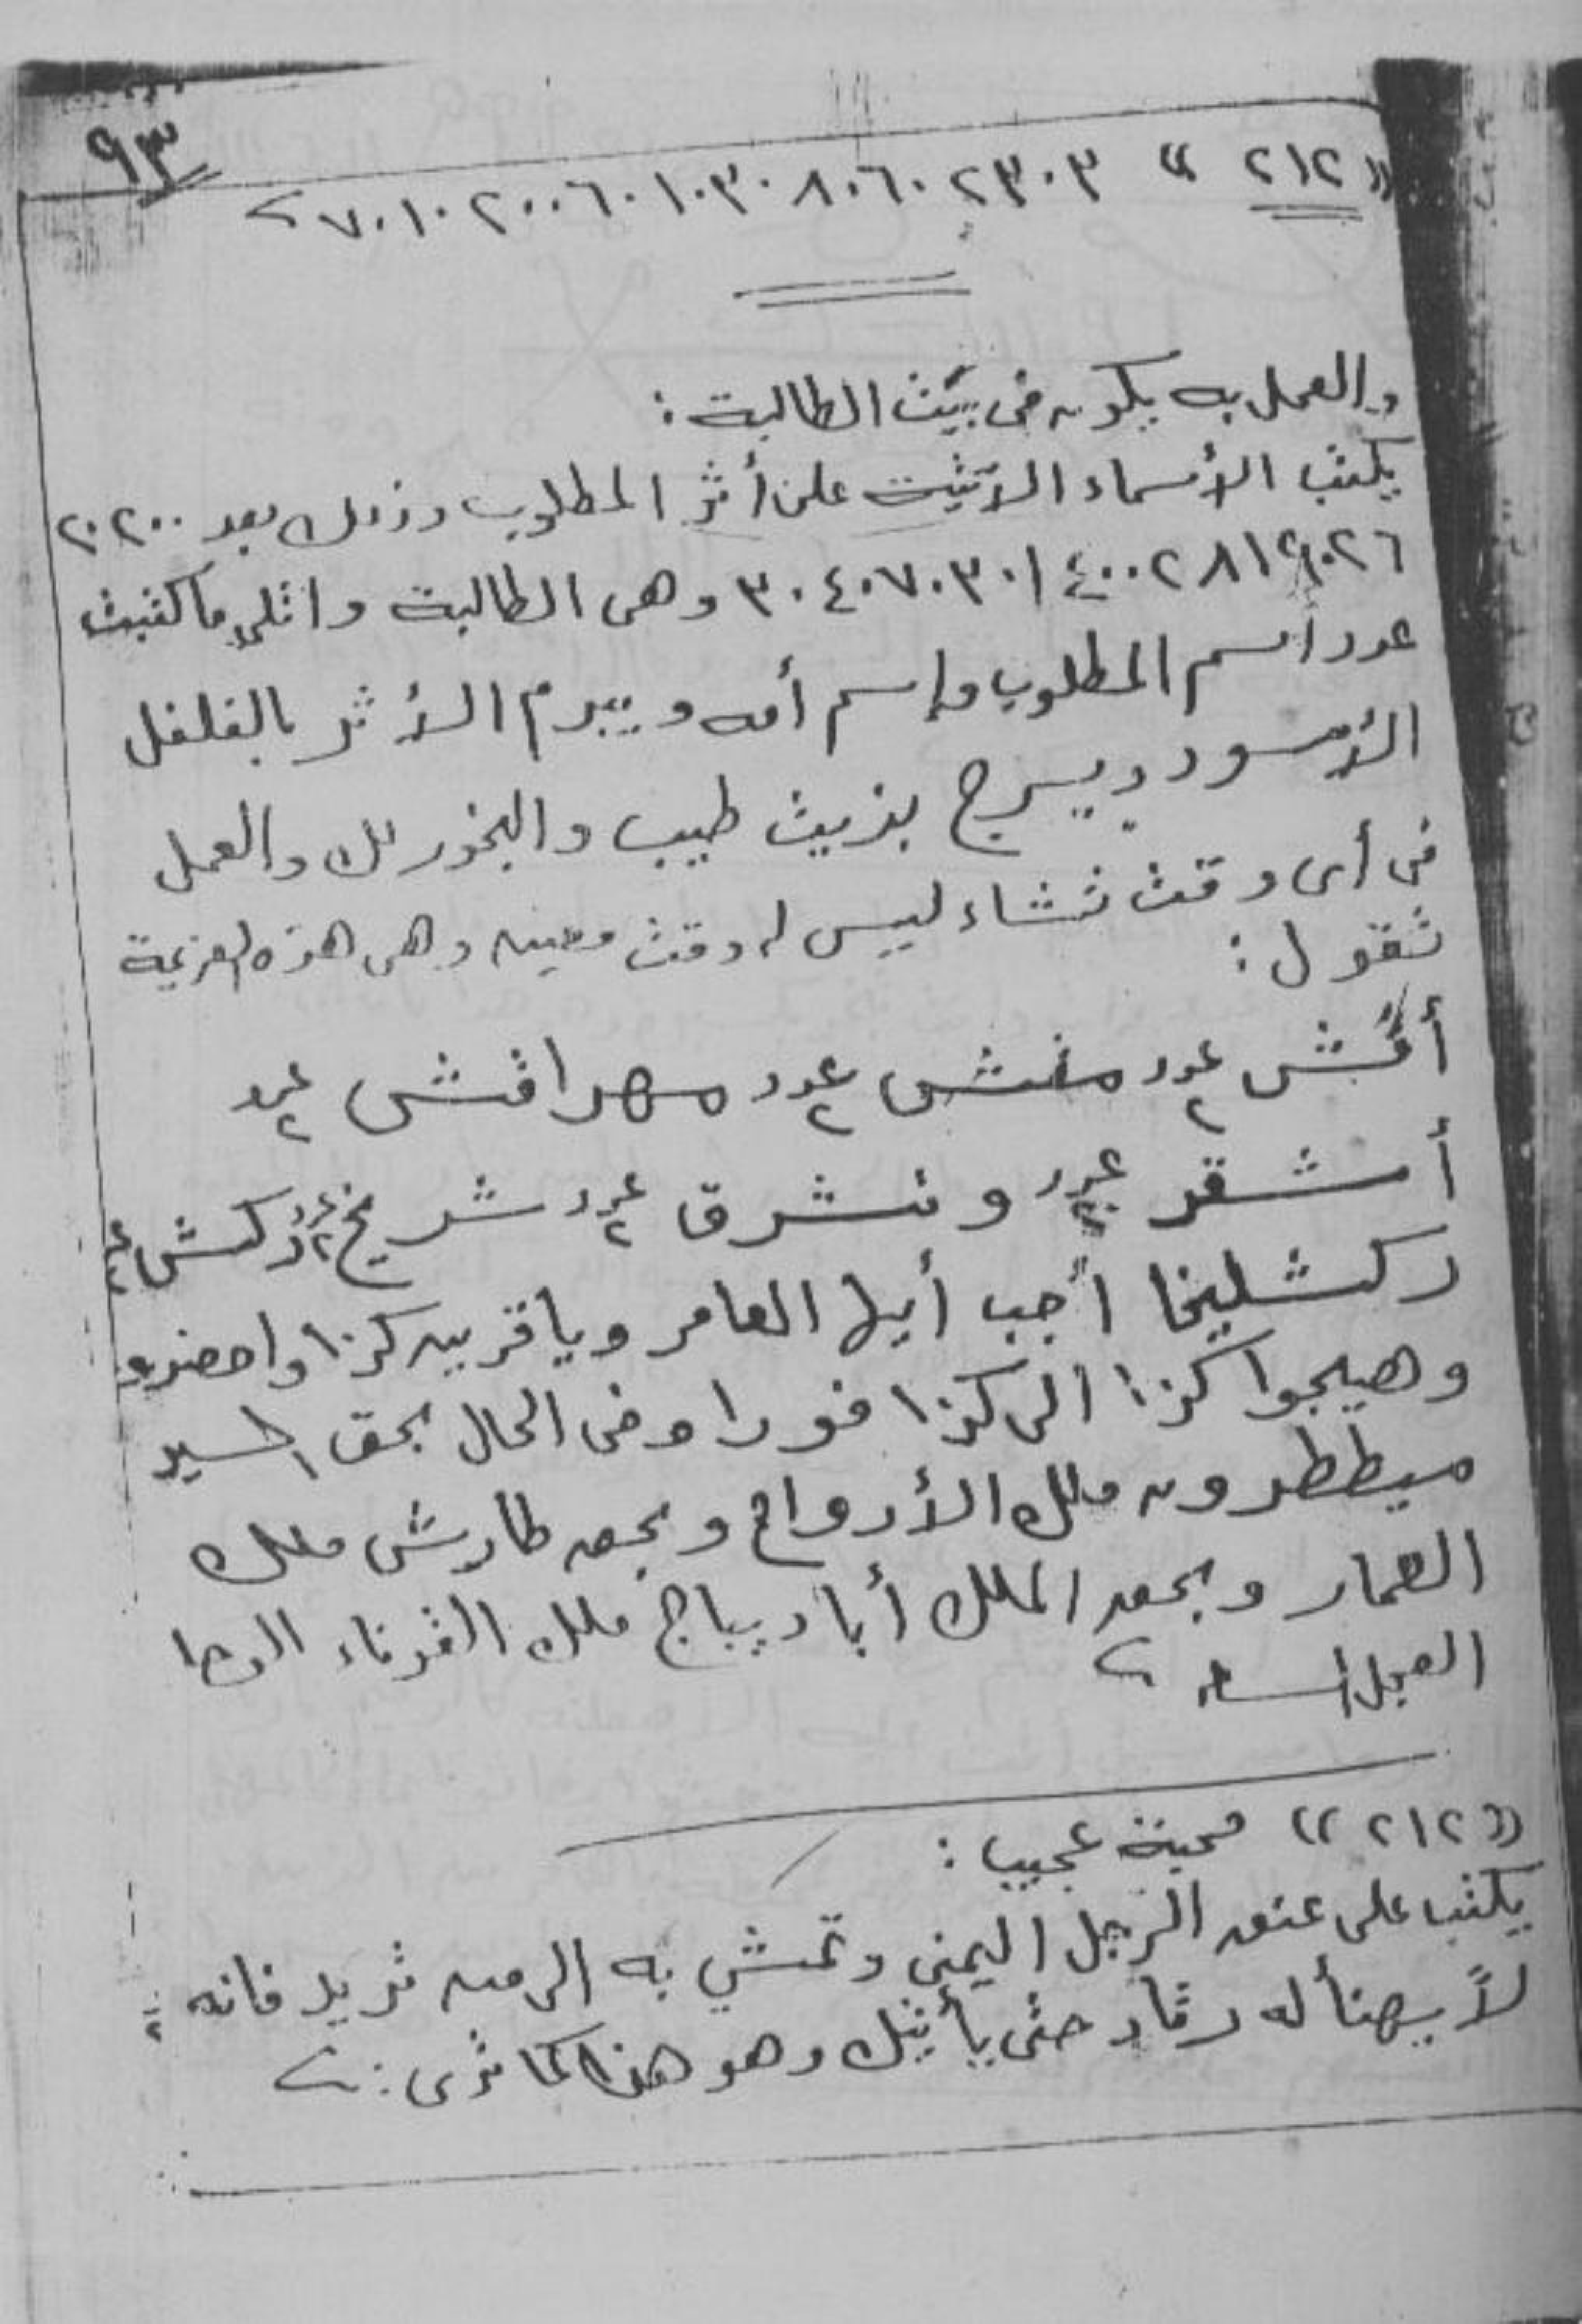 ٩٣
« ٢١٢ » ٢٣٠٣ ٧٠١٠٢٠٠٦٠١٠٣٠٨٠٦٠
والعمل به يكون فى بيت الطالبة :
يكتب الأسماء الآتية على أثر المطلوب وذلك بعد ٢٠٢٠٠
٣٠٤٠٧٠٣٠١ ٤٠٠٢٨١ وهى الطالبة واتلى ما كتبت
عدد اسم المطلوب وإسم أمه ويبرم الأثر بالفلفل
الأسود ويسرج بزيت طيب والبخور لك والعمل
فى أى وقت تشاء ليس له وقت معين وهى هذه العزيمة
تقول :
عدد ٢ عدد ٢ مهراقش عدد ٢
أشقر عدد ٢ ونشرق عدد ٢ شريخ عدد ٢ ركش
ركشليخا أجب أيها العامر ويا قرين كذا واحضروا
وهيجوا كذا الى كذا فورا وفى الحال بحق السيد
ميططرون ملك الأرواح وبحق طارش ملك
العمار وبحق الملك أبا ديباج ملك القرناء الوحا
العجل الساعة
« ٢١٢ » محبة عجيب :
يكتب على عنق الرجل اليمنى وتمشي به الى من تريد فانه
لا يهنأ له رقاد حتى يأتيك وهو هذا كما ترى :